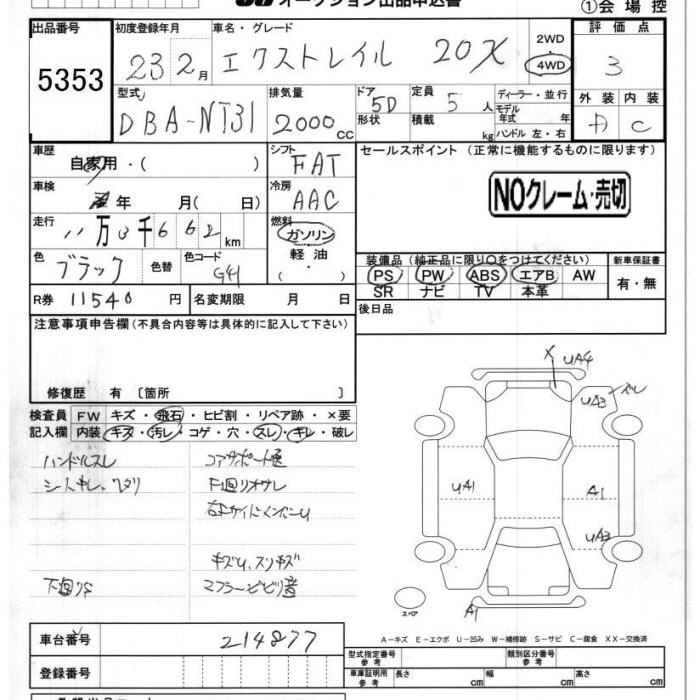 オークション出品申込書
①会場控
出品番号 初度登録年月 車名・グレード 評価点
5353 23 2月 エクストレイル 20X 2WD 4WD 3
型式 排気量 ドア 定員 ディーラー・並行 外装 内装
DBA-NT31 2000cc 5D 5人 モデル年式 年 A C
形状 積載 kg ハンドル 左・右
車歴 自家用・( ) シフト FAT セールスポイント (正常に機能するものに限ります)
車検 年 月( 日) 冷房 AAC NOクレーム・売切
走行 11万0千662km 燃料 ガソリン 軽油 ・
装備品 (純正品に限り○をつけてください) 新車保証書
色 ブラック 色替 色コード G41 PS PW ABS エアB AW 有・無
SR ナビ TV 本革
R券 11540円 名変期限 月 日 後日品
注意事項申告欄(不具合内容等は具体的に記入して下さい)
修復歴 有 〔箇所 〕
検査員 FW キズ・飛石・ヒビ割・リペア跡・×要
記入欄 内装 キズ・汚レ・コゲ・穴・スレ・キレ・破レ
X UA4
UA3 ズレ
ハンドルスレ コアサポート歪
シートキレ、ヘタリ
UA1 A1
UA3
キズU、スリキズ
下回りサ マフラービビリ音
スペア A1
A-キズ E-エクボ U-凹み W-補修跡 S-サビ C-腐食 XX-交換済
車台番号 214877
型式指定番号 参考 類別区分番号 参考
登録番号 車庫証明用 参考 長さ cm 幅 cm 高さ cm